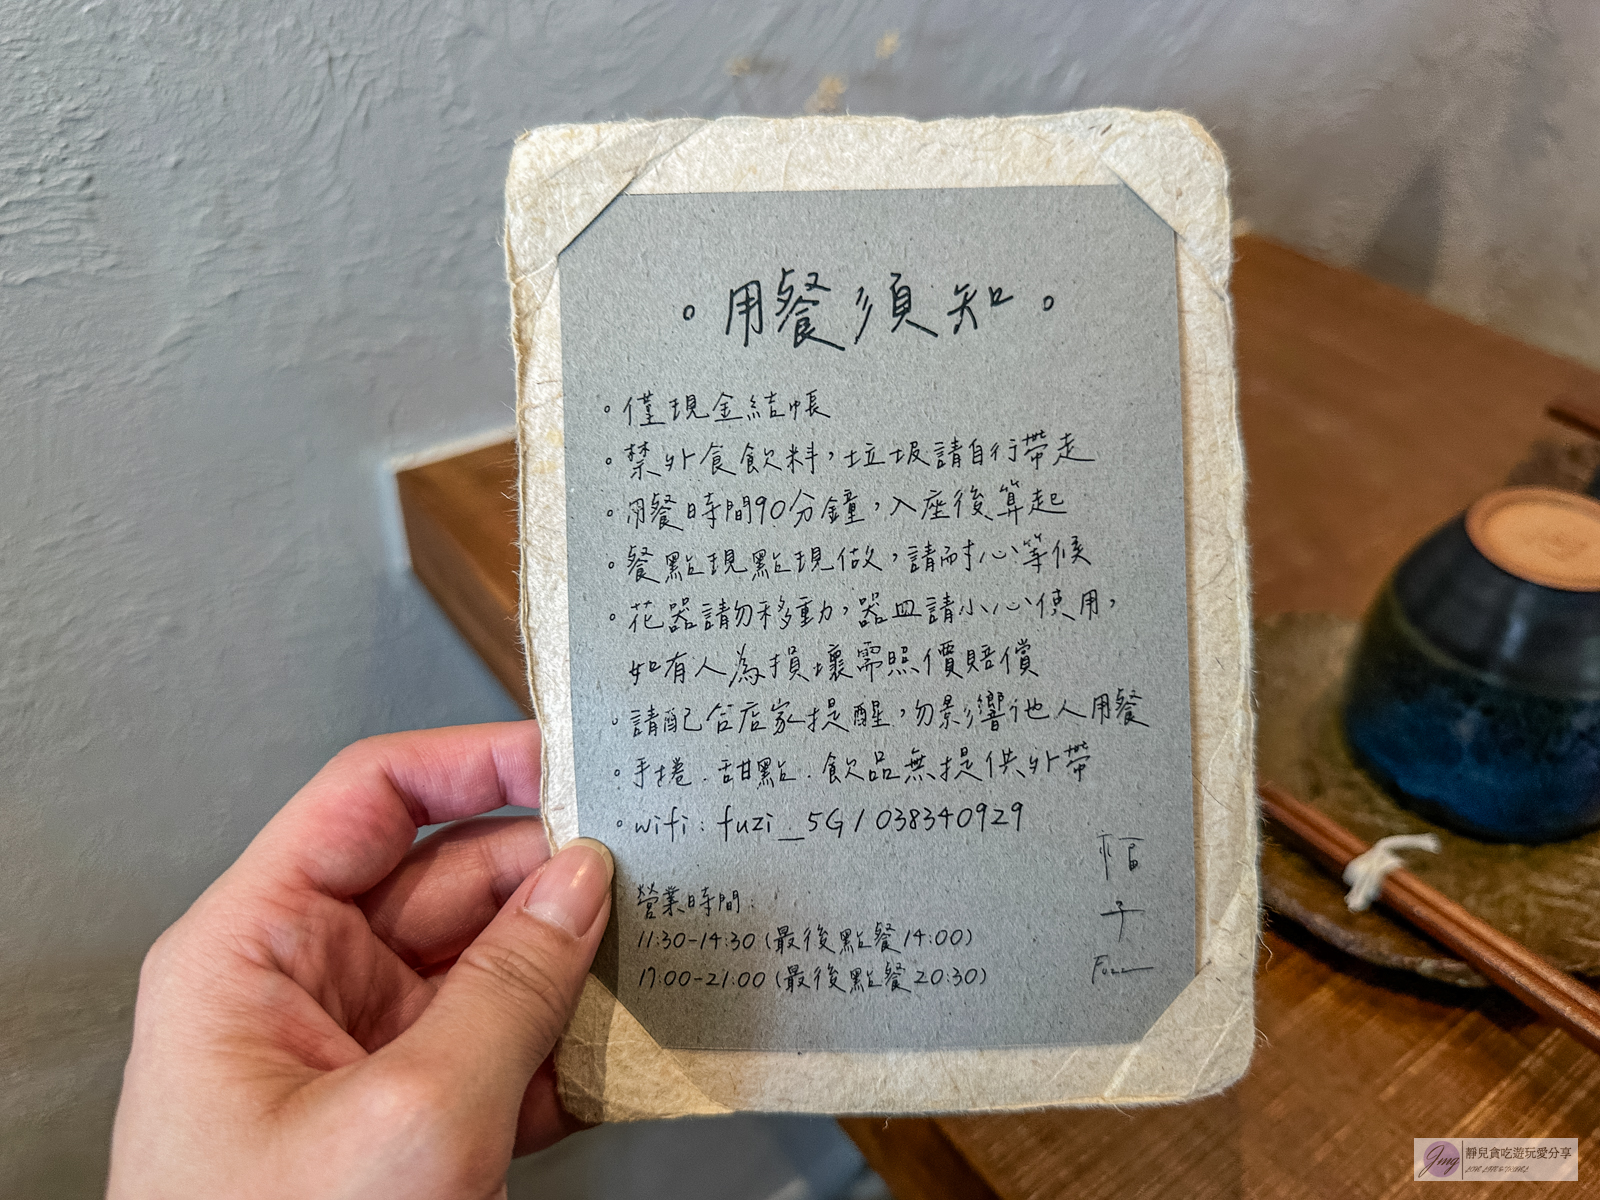 。用餐須知。
。僅現金結帳
。禁外食飲料，垃圾請自行帶走
。用餐時間90分鐘，入座後算起
。餐點現點現做，請耐心等候
。花器請勿移動，器皿請小心使用，
如有人為損壞需照價賠償
。請配合店家提醒，勿影響他人用餐
。手捲．甜點．飲品無提供外帶
。wifi：fuzi_5G / 038340929
營業時間：
11:30-14:30（最後點餐14:00）
17:00-21:00（最後點餐20:30）
福
子
Jing 靜兒貪吃遊玩愛分享